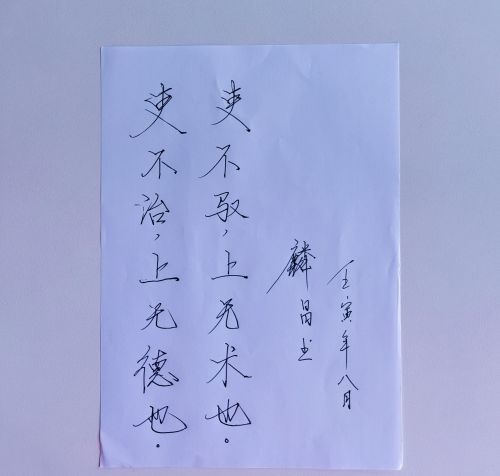 吏不治，上无德也。
吏不驭，上无术也。
麟昌书
壬寅年八月